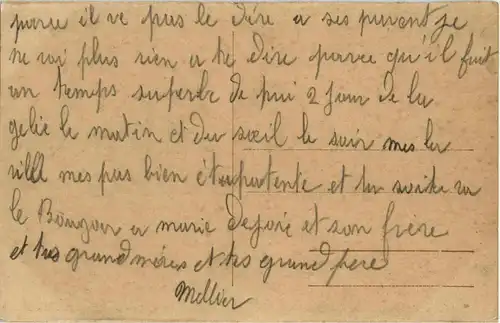 parce il ve pas le dire a ses parent je
ne voi plus rien a te dire parce qu'il fait
un temps superbe de pui 2 jour de la
gelée le matin et du soeil le soir mes la
mes pas bien et tu
le Bonjour a marie et son frère
et tes grand mères et tes grand pere
Mellier